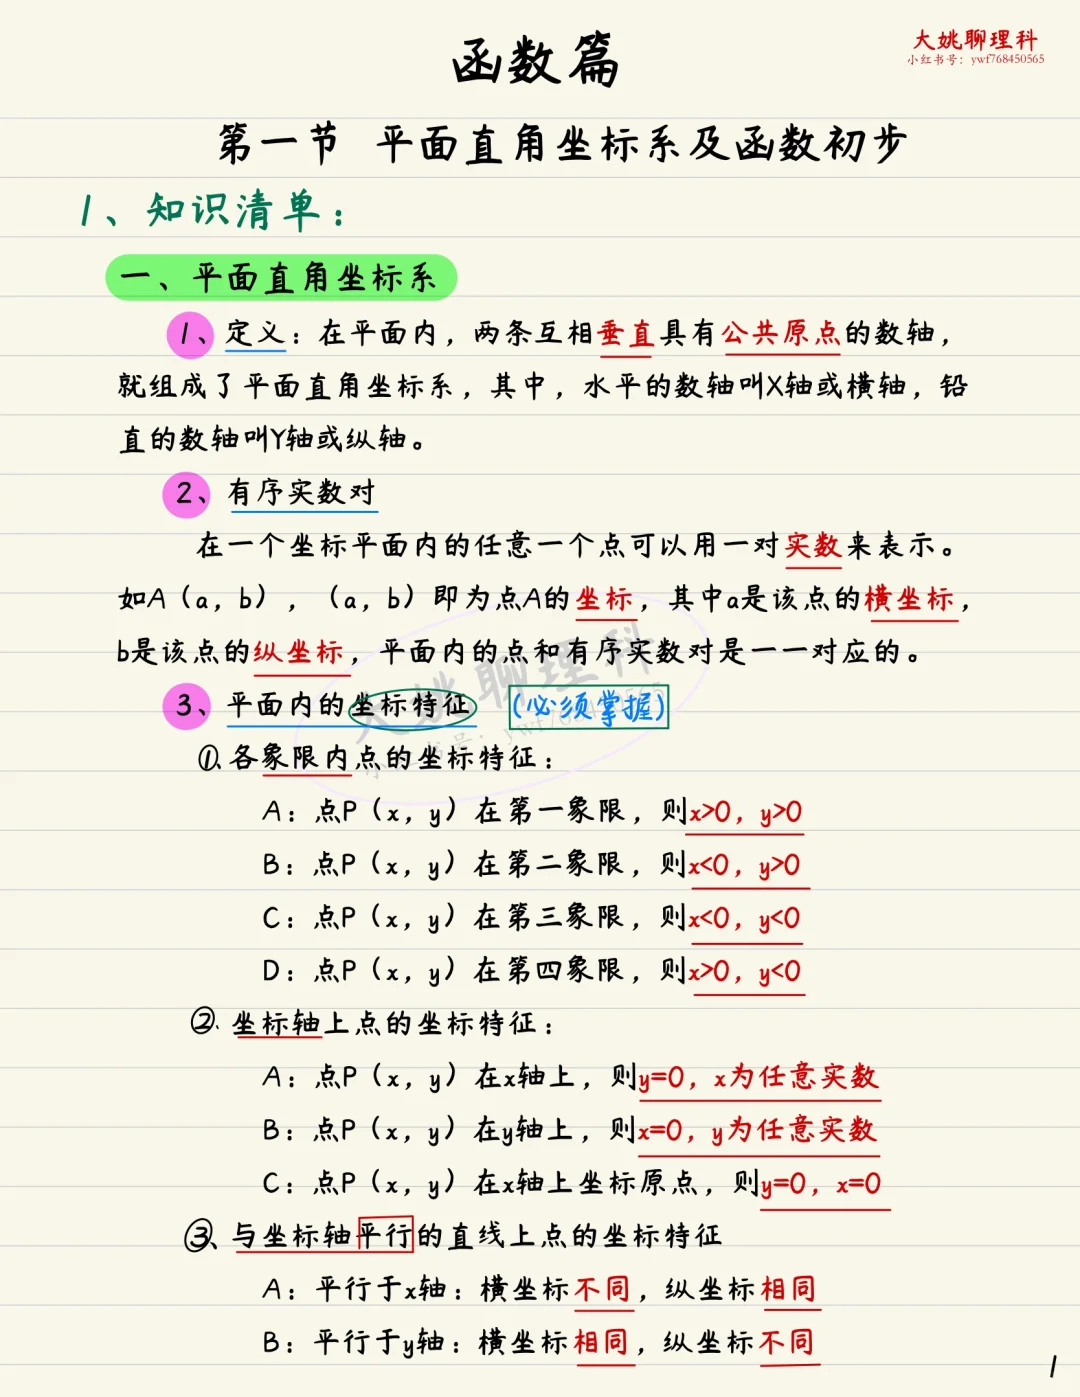 函数篇
大姚聊理科
小红书号：ywf768450565
第一节 平面直角坐标系及函数初步
1、知识清单：
一、平面直角坐标系
1、定义：在平面内，两条互相垂直具有公共原点的数轴，
就组成了平面直角坐标系，其中，水平的数轴叫X轴或横轴，铅
直的数轴叫Y轴或纵轴。
2、有序实数对
在一个坐标平面内的任意一个点可以用一对实数来表示。
如A（a，b），（a，b）即为点A的坐标，其中a是该点的横坐标，
b是该点的纵坐标，平面内的点和有序实数对是一一对应的。
大姚聊理科
小红书号：ywf768450565
3、平面内的坐标特征 (必须掌握)
①、各象限内点的坐标特征：
A：点P（x，y）在第一象限，则x>0，y>0
B：点P（x，y）在第二象限，则x<0，y>0
C：点P（x，y）在第三象限，则x<0，y<0
D：点P（x，y）在第四象限，则x>0，y<0
②、坐标轴上点的坐标特征：
A：点P（x，y）在x轴上，则y=0，x为任意实数
B：点P（x，y）在y轴上，则x=0，y为任意实数
C：点P（x，y）在x轴上坐标原点，则y=0，x=0
③、与坐标轴平行的直线上点的坐标特征
A：平行于x轴：横坐标不同，纵坐标相同
B：平行于y轴：横坐标相同，纵坐标不同
1